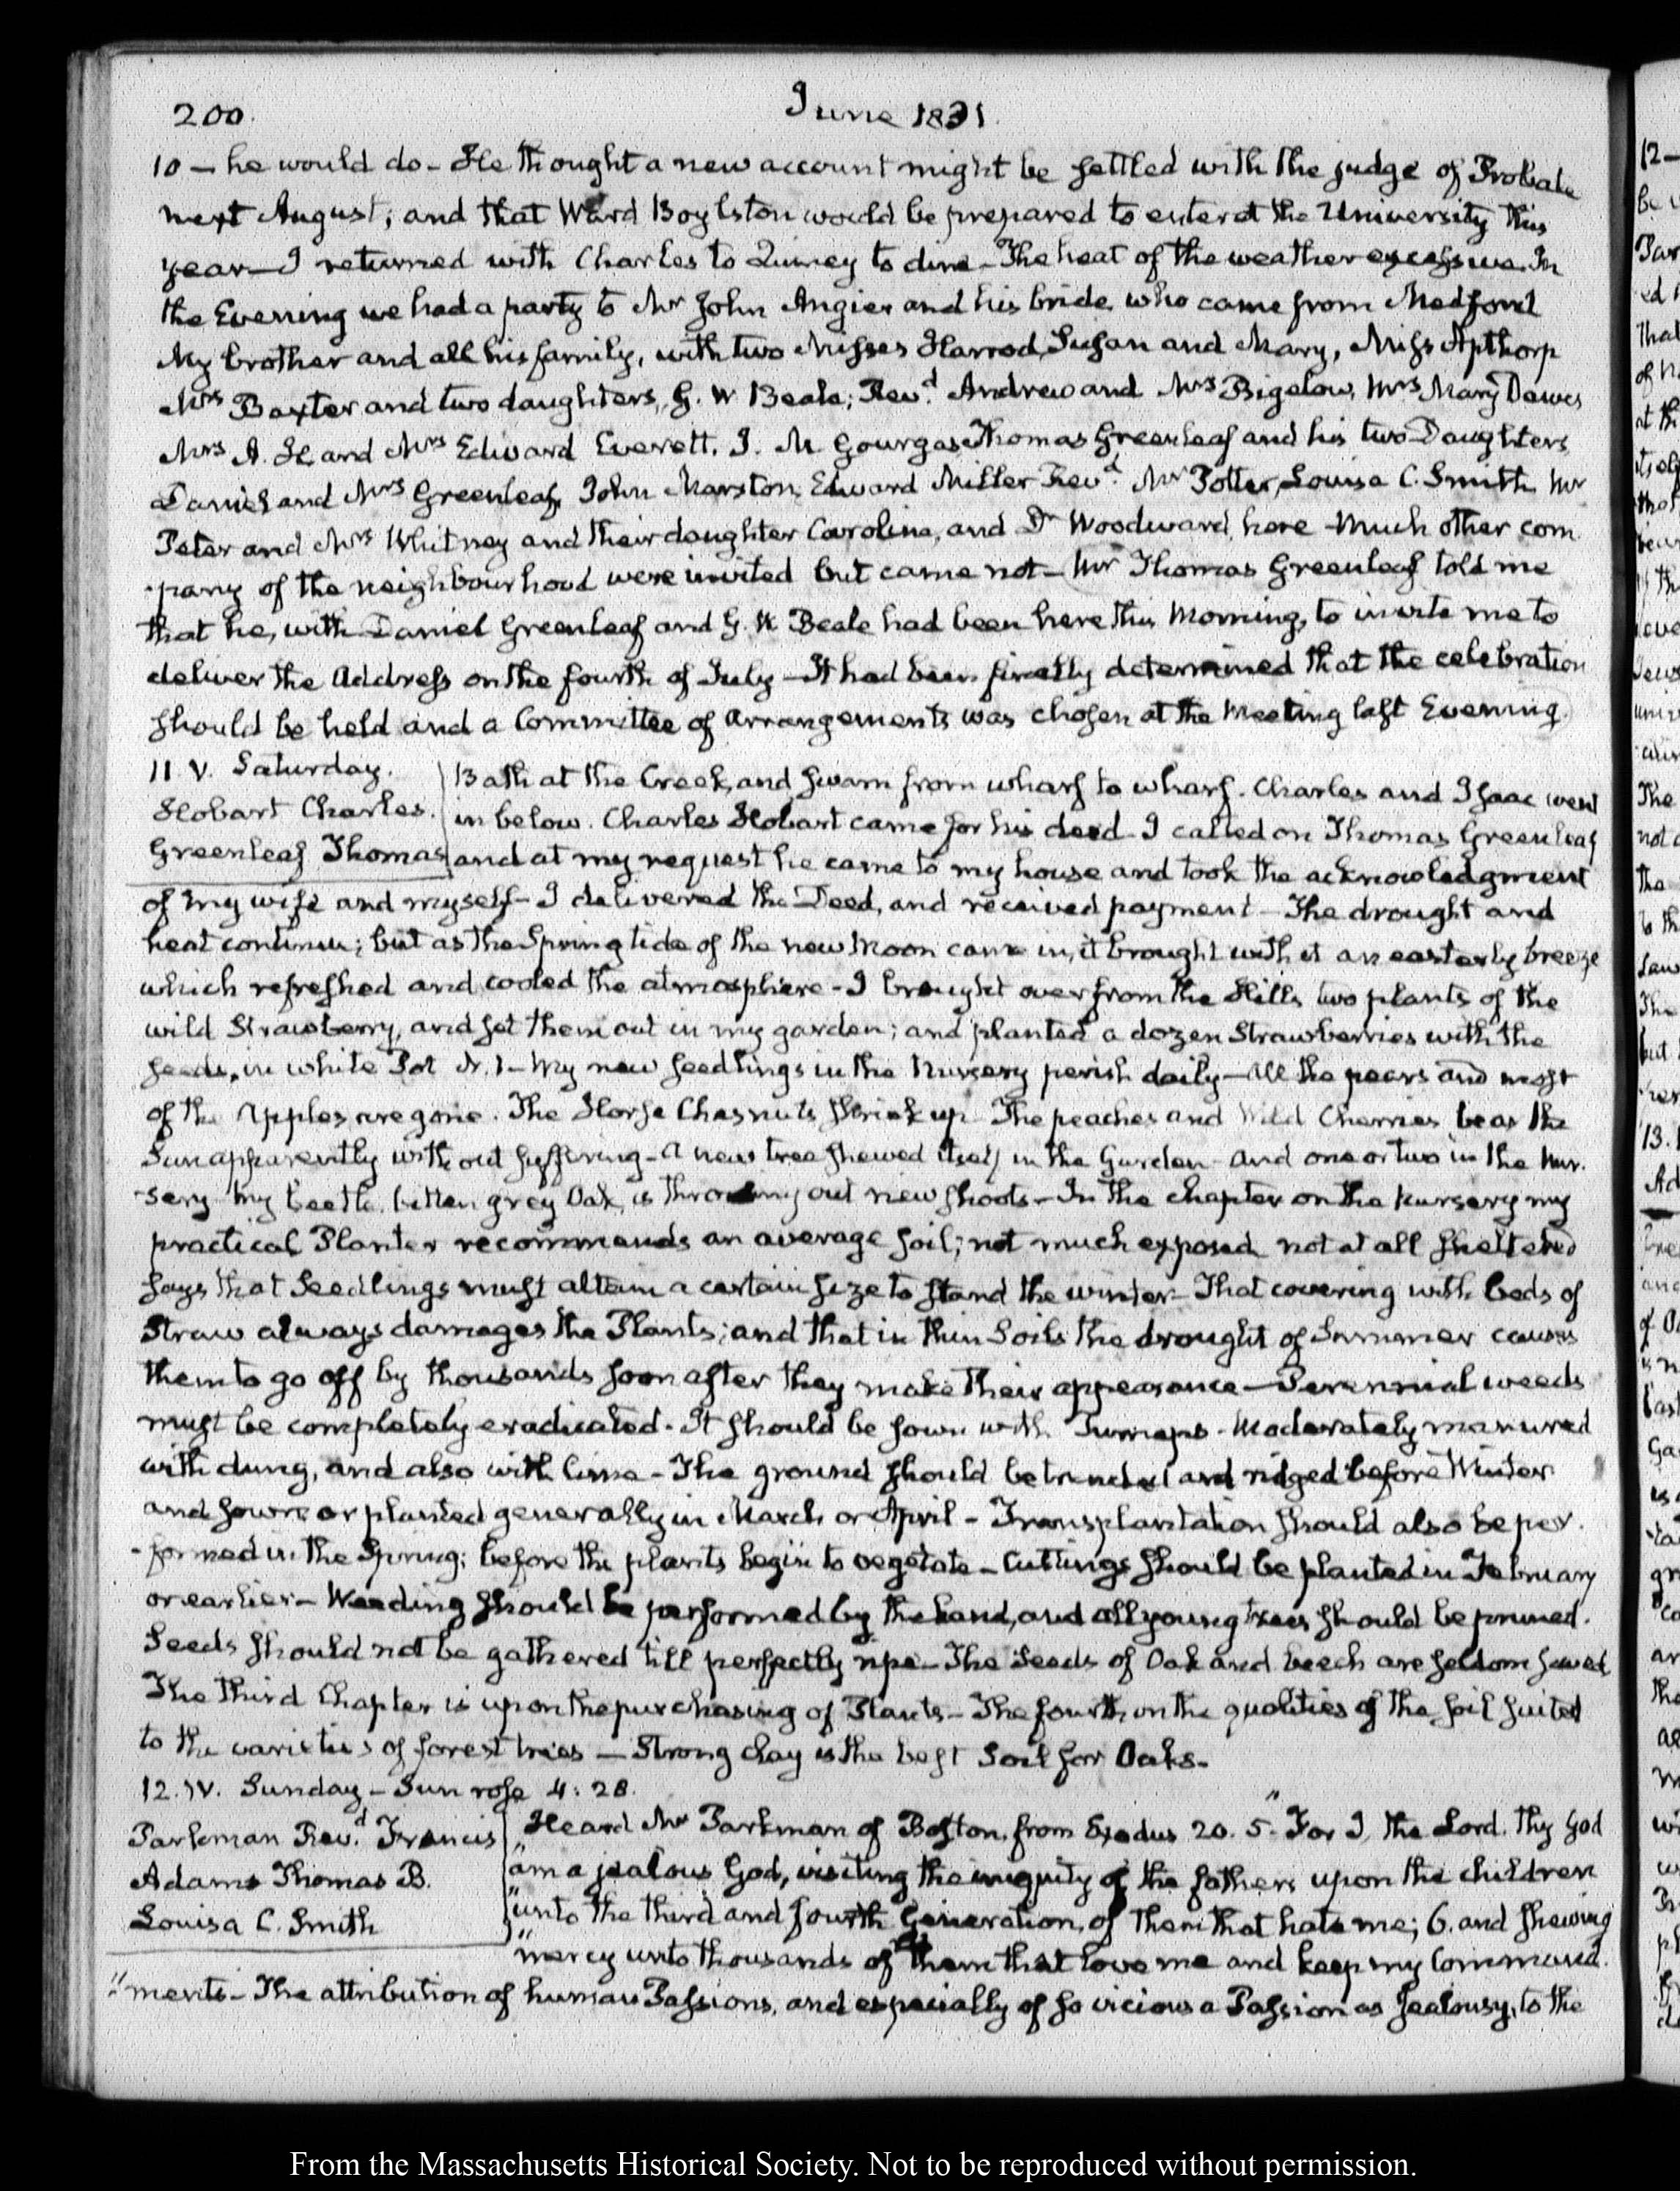 200.
June 1831.
10 — he would do - He thought a new account might be settled with the judge of Probate
next August; and that Ward Boylston would be prepared to enter at the University this
year — I returned with Charles to Quincy to dine - The heat of the weather excessive. In
the Evening we had a party to Mr John Angier and his bride who came from Medford
My brother and all his family, with two Misses Harrod, Susan and Mary, Miss Apthorp
Mrs Baxter and two daughters, G. W Beale; Revd. Andrew and Mrs Bigelow, Mrs Mary Dawes
Mrs A. H. and Mrs Edward Everett. J. M Gourgas Thomas Greenleaf and his two Daughters
Daniel and Mrs Greenleaf, John Marston, Edward Miller Revd. Mr Potter, Louisa C. Smith Mr
Peter and Mrs Whitney and their daughter Caroline, and Dr Woodward, here - Much other com
-pany of the neighbourhood were invited but came not — Mr Thomas Greenleaf told me
that he, with Daniel Greenleaf and G. W Beale had been here this Morning, to invite me to
deliver the Address on the fourth of July — It had been finally determined that the celebration
should be held and a Committee of arrangements was chosen at the Meeting last Evening.
11. V. Saturday.
Hobart Charles.
Greenleaf Thomas
Bath at the Creek, and swam from wharf to wharf. Charles and Isaac went
in below. Charles Hobart came for his deed - I called on Thomas Greenleaf
and at my request he came to my house and took the acknowledgment
of my wife and myself - I delivered the Deed, and received payment - The drought and
heat continue; but as the Spring tide of the new Moon came in, it brought with it an easterly breeze
which refreshed and cooled the atmosphere - I brought over from the Hills two plants of the
wild Strawberry, and set them out in my garden; and planted a dozen Strawberries with the
seeds, in white Pot N. 1 - My new seedlings in the Nursery perish daily — all the pears and most
of the Apples are gone. The Horse Chesnuts shrink up - The peaches and Wild Cherries bear the
Sun apparently without suffering - A new tree shewed itself in the Garden - and one or two in the Nur.
-sery - My beetle bitten grey Oak, is throwing out new shoots - In the chapter on the Nursery my
practical Planter recommends an average soil; not much exposed not at all sheltered
says that Seedlings must attain a certain size to stand the winter - That covering with beds of
Straw always damages the Plants; and that in thin Soils the drought of Summer causes
them to go off by thousands soon after they make their appearance — Perennial weeds
must be completely eradicated - It should be sown with Turnips - Moderately manured
with dung, and also with lime - The ground should be trenched and ridged before Winter
and sown or planted generally in March or April - Transplantation should also be per.
-formed in the Spring; before the plants begin to vegetate - Cuttings should be planted in February
or earlier - Weeding should be performed by the hand, and all young trees should be pruned.
Seeds should not be gathered till perfectly ripe - The Seeds of Oak and beech are seldom saved
The third Chapter is upon the purchasing of Plants - The fourth, on the qualities of the soil suited
to the varieties of forest trees — Strong clay is the best Soil for Oaks -
12. IV. Sunday - Sun rose 4:28.
Parkman Revd. Francis
Adams Thomas B.
Louisa C. Smith
Heard Mr Parkman of Boston, from Exodus 20. 5. "For I, the Lord. thy God
"am a jealous God, visiting the iniquity of the fathers upon the children
"unto the third and fourth Generation, of them that hate me; 6. and shewing
"mercy unto thousands of them that love me and keep my Command.
"ments - The attribution of human Passions, and especially of so vicious a Passion as Jealousy, to the
From the Massachusetts Historical Society. Not to be reproduced without permission.